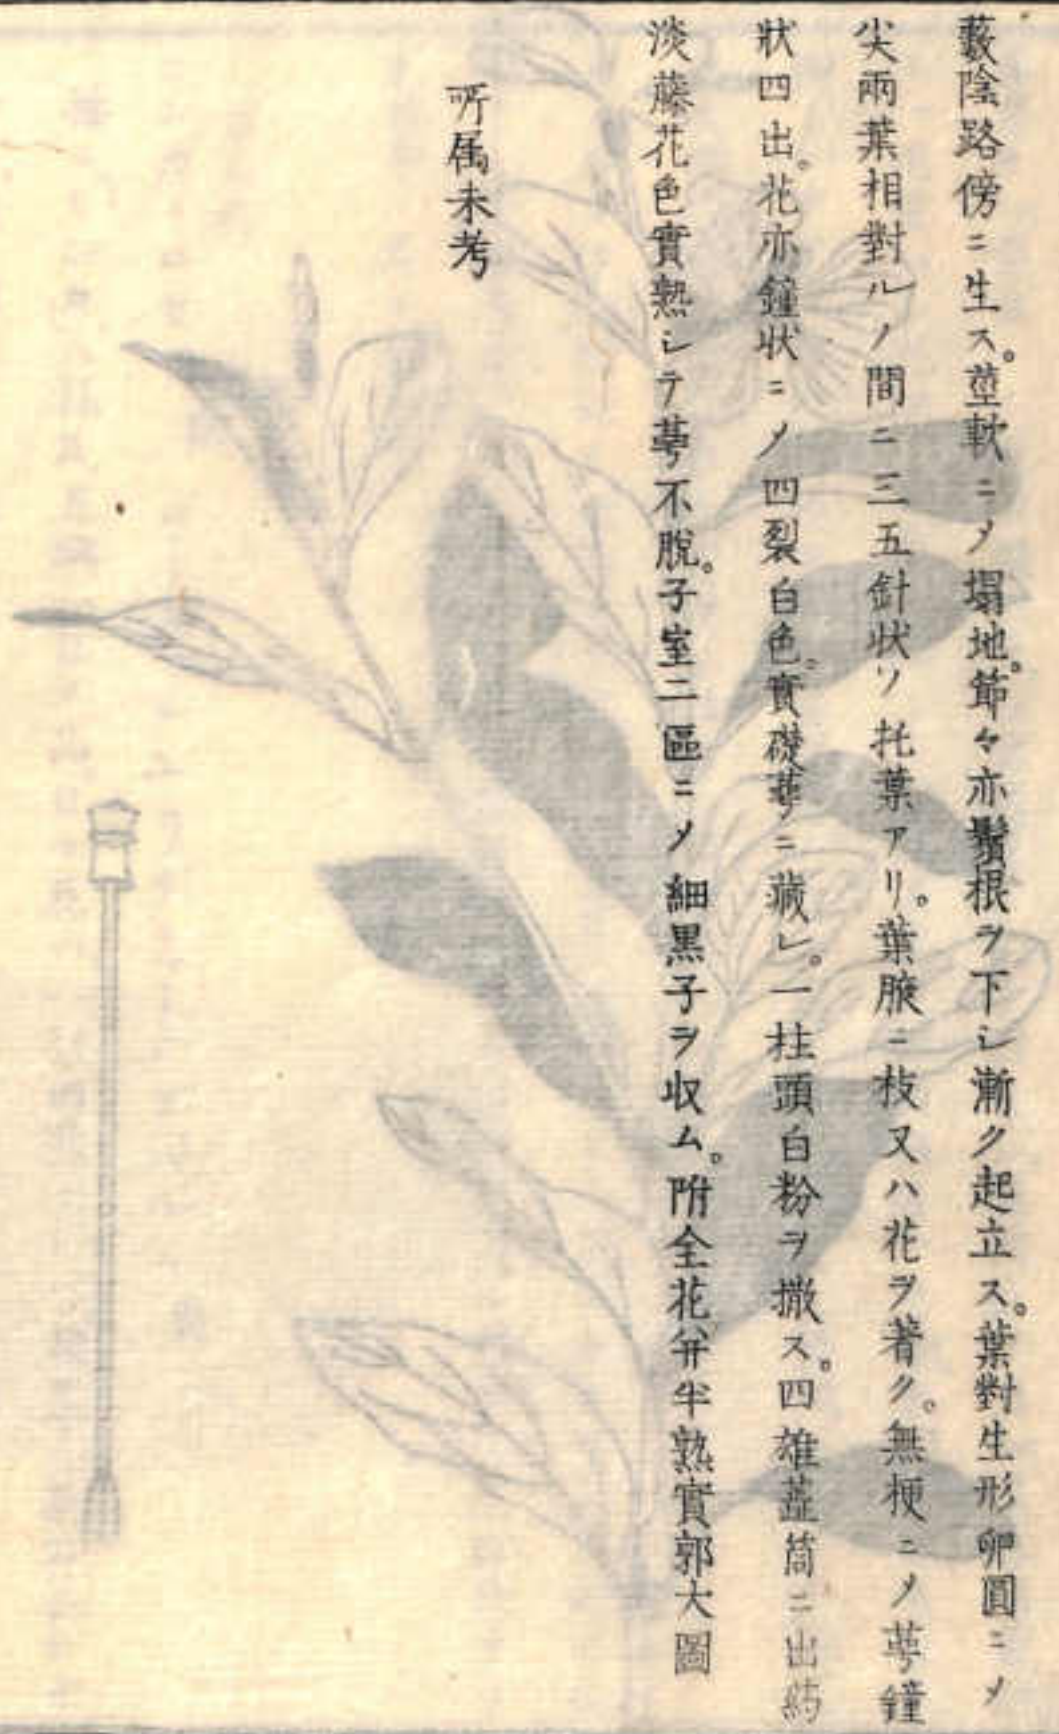 藪陰路傍ニ生ス。莖軟ニノ塌地。節々亦鬚根ヲ下シ漸ク起立ス。葉對生形卵圓ニノ
尖兩葉相對ルノ間ニ三五針状ソ托葉アリ。葉腋ニ枝又ハ花ヲ著ク。無梗ニノ萼鐘
狀四出。花亦鐘状ニノ四裂白色。實礎萼ニ藏レ。一柱頭白粉ヲ撒ス。四雄蕋筒ニ出葯
淡藤花色實熟シテ萼不脱。子室二區ニノ細黒子ヲ収ム。附全花并半熟實郭大圖
所属未考